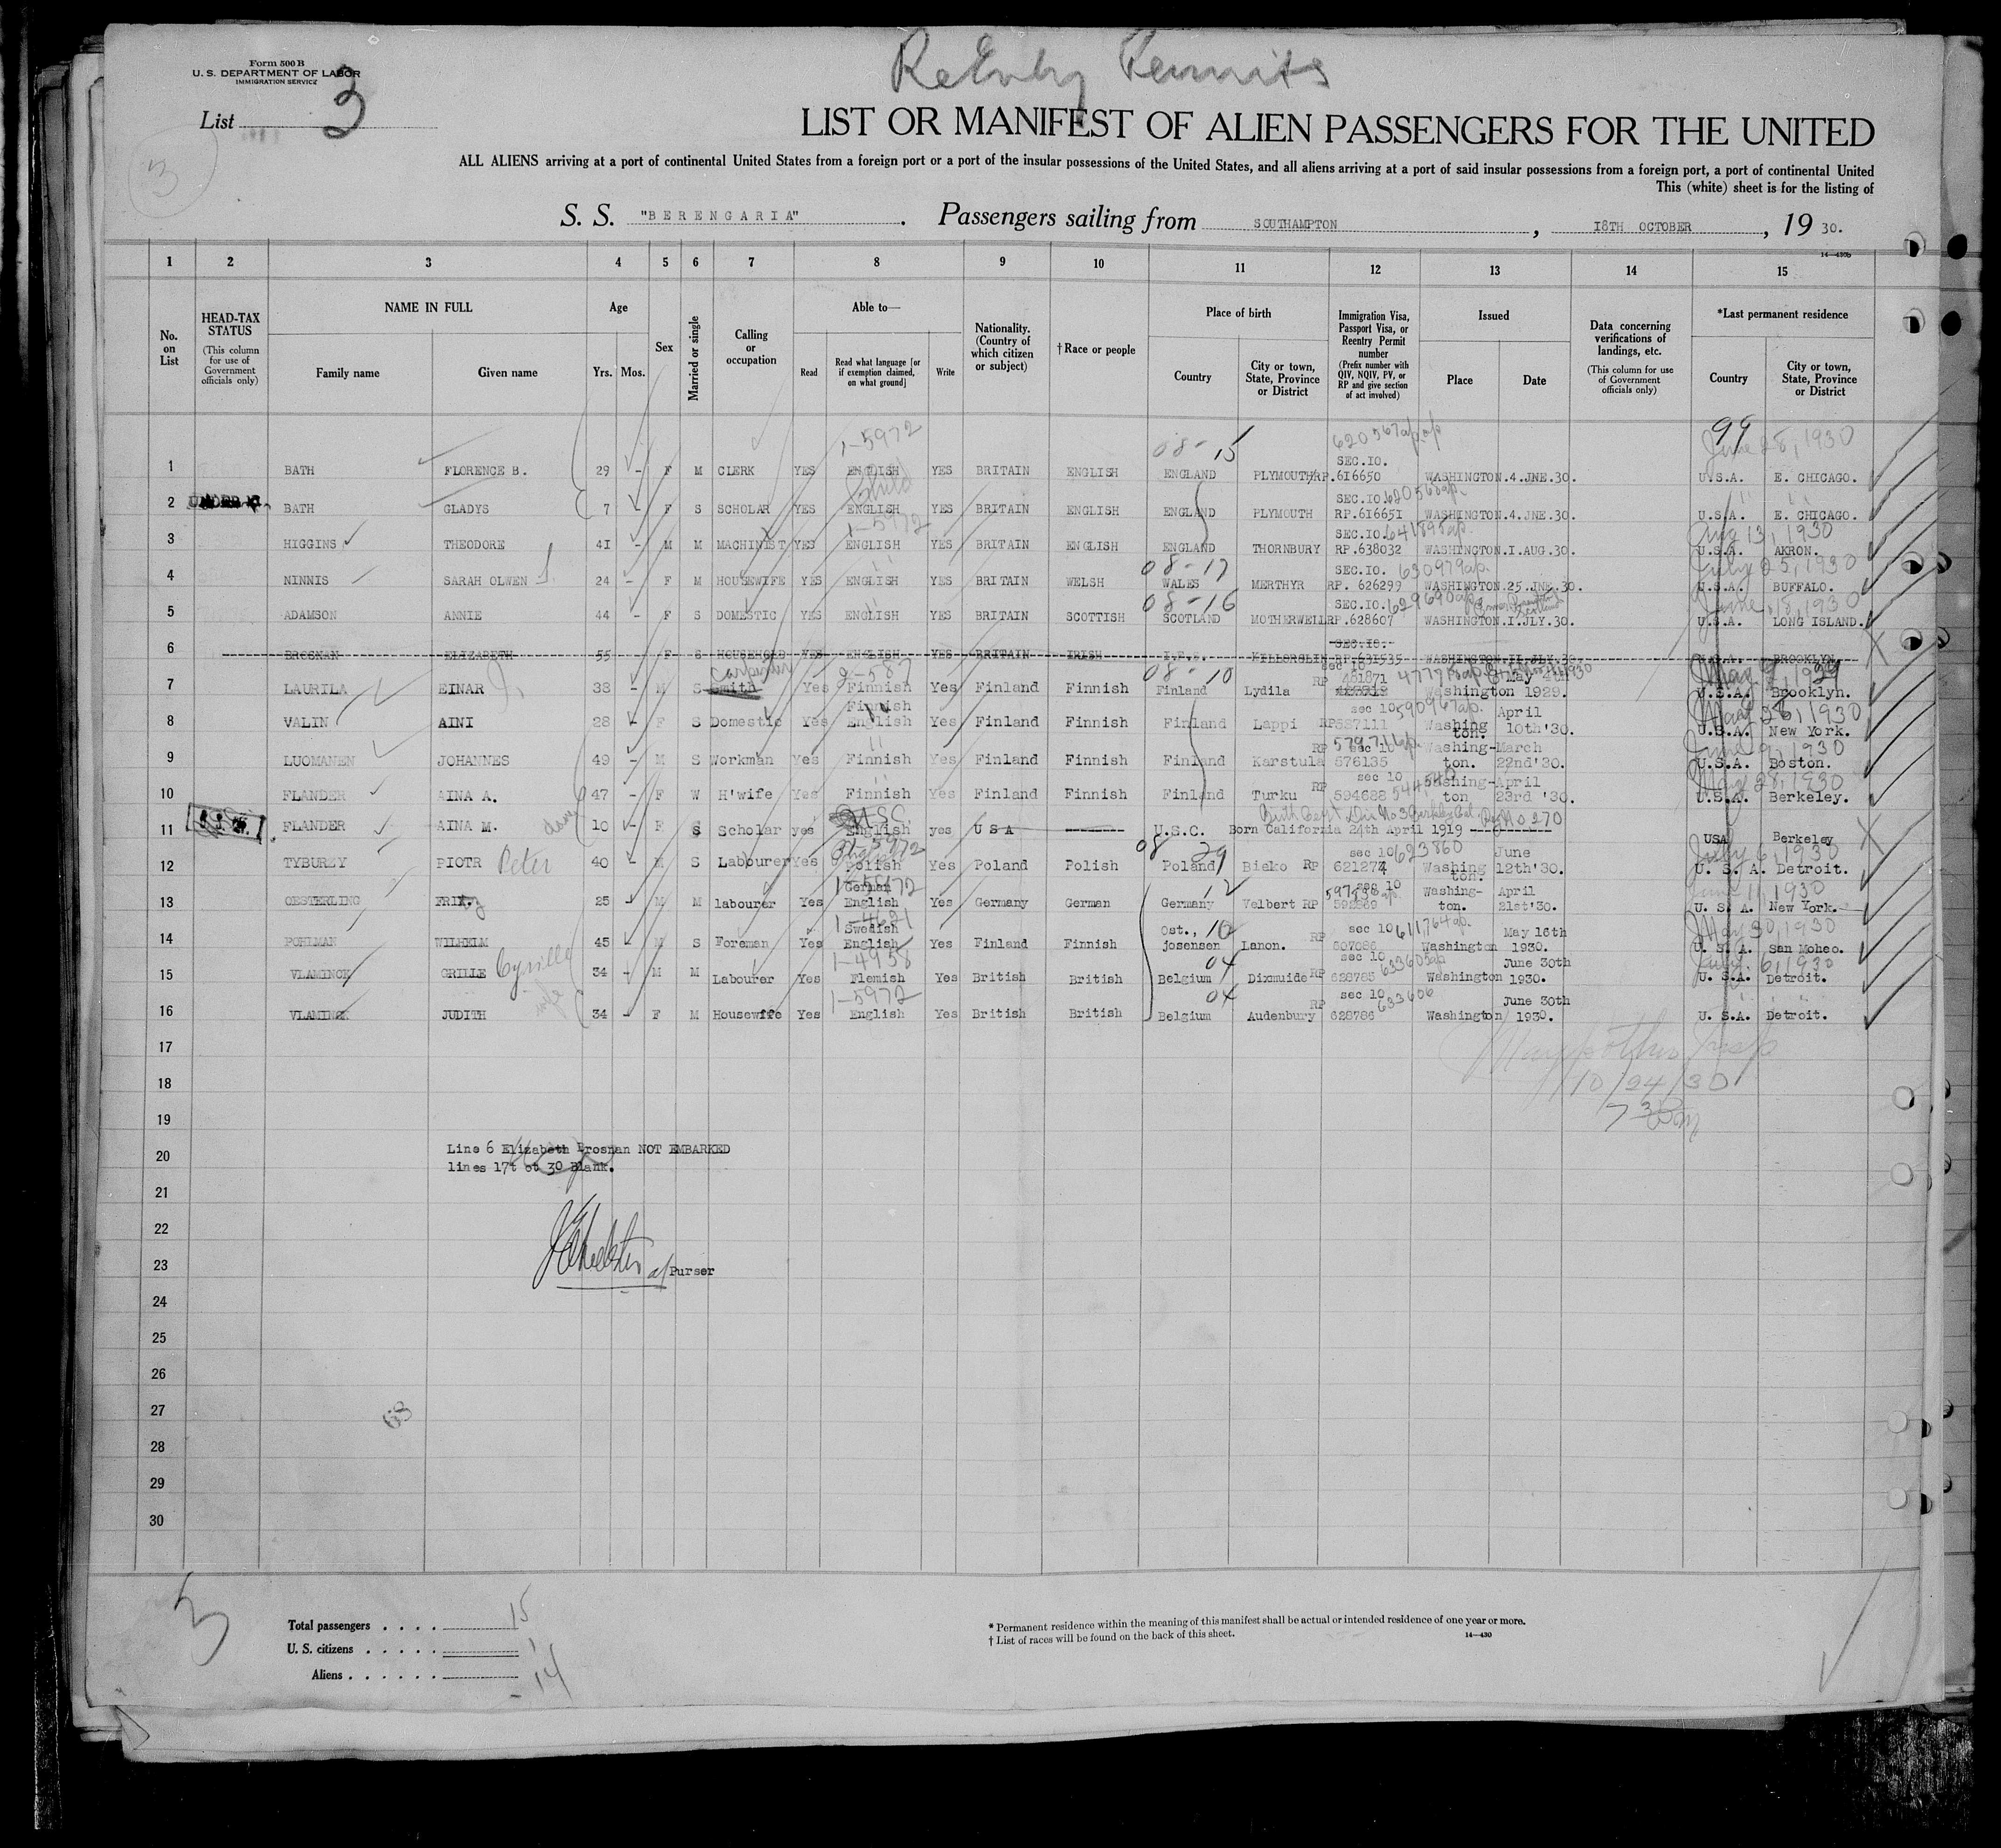 Reentry Permits
Form 500 B
U. S. DEPARTMENT OF LABOR
IMMIGRATION SERVICE
List 3
3
LIST OR MANIFEST OF ALIEN PASSENGERS FOR THE UNITED
ALL ALIENS arriving at a port of continental United States from a foreign port or a port of the insular possessions of the United States, and all aliens arriving at a port of said insular possessions from a foreign port, a port of continental United
This (white) sheet is for the listing of
S. S. "BERENGARIA". Passengers sailing from SOUTHAMPTON, 18TH OCTOBER, 19 30.
14—430b
1 2 3 4 5 6 7 8 9 10 11 12 13 14 15
No. on List
HEAD-TAX STATUS (This column for use of Government officials only)
NAME IN FULL Family name Given name
Age Yrs. Mos.
Sex
Married or single
Calling or occupation
Able to— Read Read what language [or if exemption claimed, on what ground] Write
Nationality. (Country of which citizen or subject)
†Race or people
Place of birth Country City or town, State, Province or District
Immigration Visa, Passport Visa, or Reentry Permit number (Prefix number with QIV, NQIV, PV, or RP and give section of act involved)
Issued Place Date
Data concerning verifications of landings, etc. (This column for use of Government officials only)
*Last permanent residence Country City or town, State, Province or District
1-5972 08-15 620567 99 June 28, 1930
1 BATH FLORENCE B. 29 - F M CLERK YES ENGLISH YES BRITAIN ENGLISH ENGLAND PLYMOUTH SEC.IO. RP.616650 WASHINGTON.4.JNE.30. U.S.A. E. CHICAGO.
Child 620568
2 UNDER BATH GLADYS 7 F S SCHOLAR YES ENGLISH YES BRITAIN ENGLISH ENGLAND PLYMOUTH SEC.IO. RP.616651 WASHINGTON.4.JNE.30. U.S.A. E. CHICAGO.
1-5972 641895 Aug 13, 1930
3 HIGGINS THEODORE 4I - M M MACHINIST YES ENGLISH YES BRITAIN ENGLISH ENGLAND THORNBURY SEC.IO. RP.638032 WASHINGTON.I.AUG.30. U.S.A. AKRON.
" 08-17 630979 July 25, 1930
4 NINNIS SARAH OLWEN 24 - F M HOUSEWIFE YES ENGLISH YES BRITAIN WELSH WALES MERTHYR SEC.IO. RP. 626299 WASHINGTON.25.JNE.30. U.S.A. BUFFALO.
" 08-16 629690 June 18, 1930
5 ADAMSON ANNIE 44 - F S DOMESTIC YES ENGLISH YES BRITAIN SCOTTISH SCOTLAND MOTHERWELL SEC.IO. RP.628607 WASHINGTON.I.JLY.30. U.S.A. LONG ISLAND.
6 BROSNAN ELIZABETH 55 F S HOUSEHOLD YES ENGLISH YES BRITAIN IRISH I.F.S. KILLORGLIN SEC.IO. RP.631535 WASHINGTON.II.JLY.30 U.S.A. BROOKLYN.
Carpenter 2-587 08-10
7 LAURILA EINAR 38 - M S Smith Yes Finnish Yes Finland Finnish Finland Lydila sec 10 RP 481871 Washington May 4th 1929. U.S.A. Brooklyn.
590967 May 28, 1930
8 VALIN AINI 28 - F S Domestic Yes Finnish English Yes Finland Finnish Finland Lappi sec 10 RP587111 Washing ton. April 10th'30. U.S.A. New York.
" 579716 June 9, 1930
9 LUOMANEN JOHANNES 49 - M S Workman Yes Finnish Yes Finland Finnish Finland Karstula RP sec 10 576135 Washing-ton. March 22nd'30. U.S.A. Boston.
" May 28, 1930
10 FLANDER AINA A. 47 - F W H'wife Yes Finnish Yes Finland Finnish Finland Turku RP sec 10 594688 Washing-ton April 23rd '30. U.S.A. Berkeley.
USC
11 FLANDER AINA M. 10 - F S Scholar yes English yes U S A U.S.C. Born California 24th April 1919 USA Berkeley
1-5972 08 29 623860 July 6, 1930
12 TYBURSY PIOTR Peter 40 - M S Labourer Yes Polish Yes Poland Polish Poland Bieko RP sec 10 621274 Washing ton. June 12th'30. U. S. A. Detroit.
1-5972 12 June 11, 1930
13 OESTERLING FRITZ 25 - M M labourer Yes German English Yes Germany German Germany Velbert RP sec 10 592869 Washing-ton. April 21st'30. U. S. A. New York.
1-4621 10 611764 May 30, 1930
14 POHLMAN WILHELM 45 M S Foreman Yes Swedish English Yes Finland Finnish Ost., josensen Lanon. RP sec 10 607086 Washington May 16th 1930. U. S. A. San Moheo.
1-4958 04 633605 July 6, 1930
15 VLAMINCK GRILLE Cyrille 34 - M M Labourer Yes Flemish Yes British British Belgium Dixmuide RP sec 10 628785 Washington June 30th 1930. U. S.A. Detroit.
wife 1-5972 04 633606
16 VLAMINCK JUDITH 34 - F M Housewife Yes English Yes British British Belgium Audenbury RP sec 10 628786 Washington June 30th 1930. U. S.A. Detroit.
17
18 10/24/30
19
Line 6 Elizabeth Brosnan NOT EMBARKED
20
lines 17t ot 30 Blank.
21
22
23 Purser
24
25
26
27 68
28
29
30
3
Total passengers . . . . 15
U. S. citizens . . . . . 1
Aliens . . . . . . - 14
* Permanent residence within the meaning of this manifest shall be actual or intended residence of one year or more.
† List of races will be found on the back of this sheet. 14—430